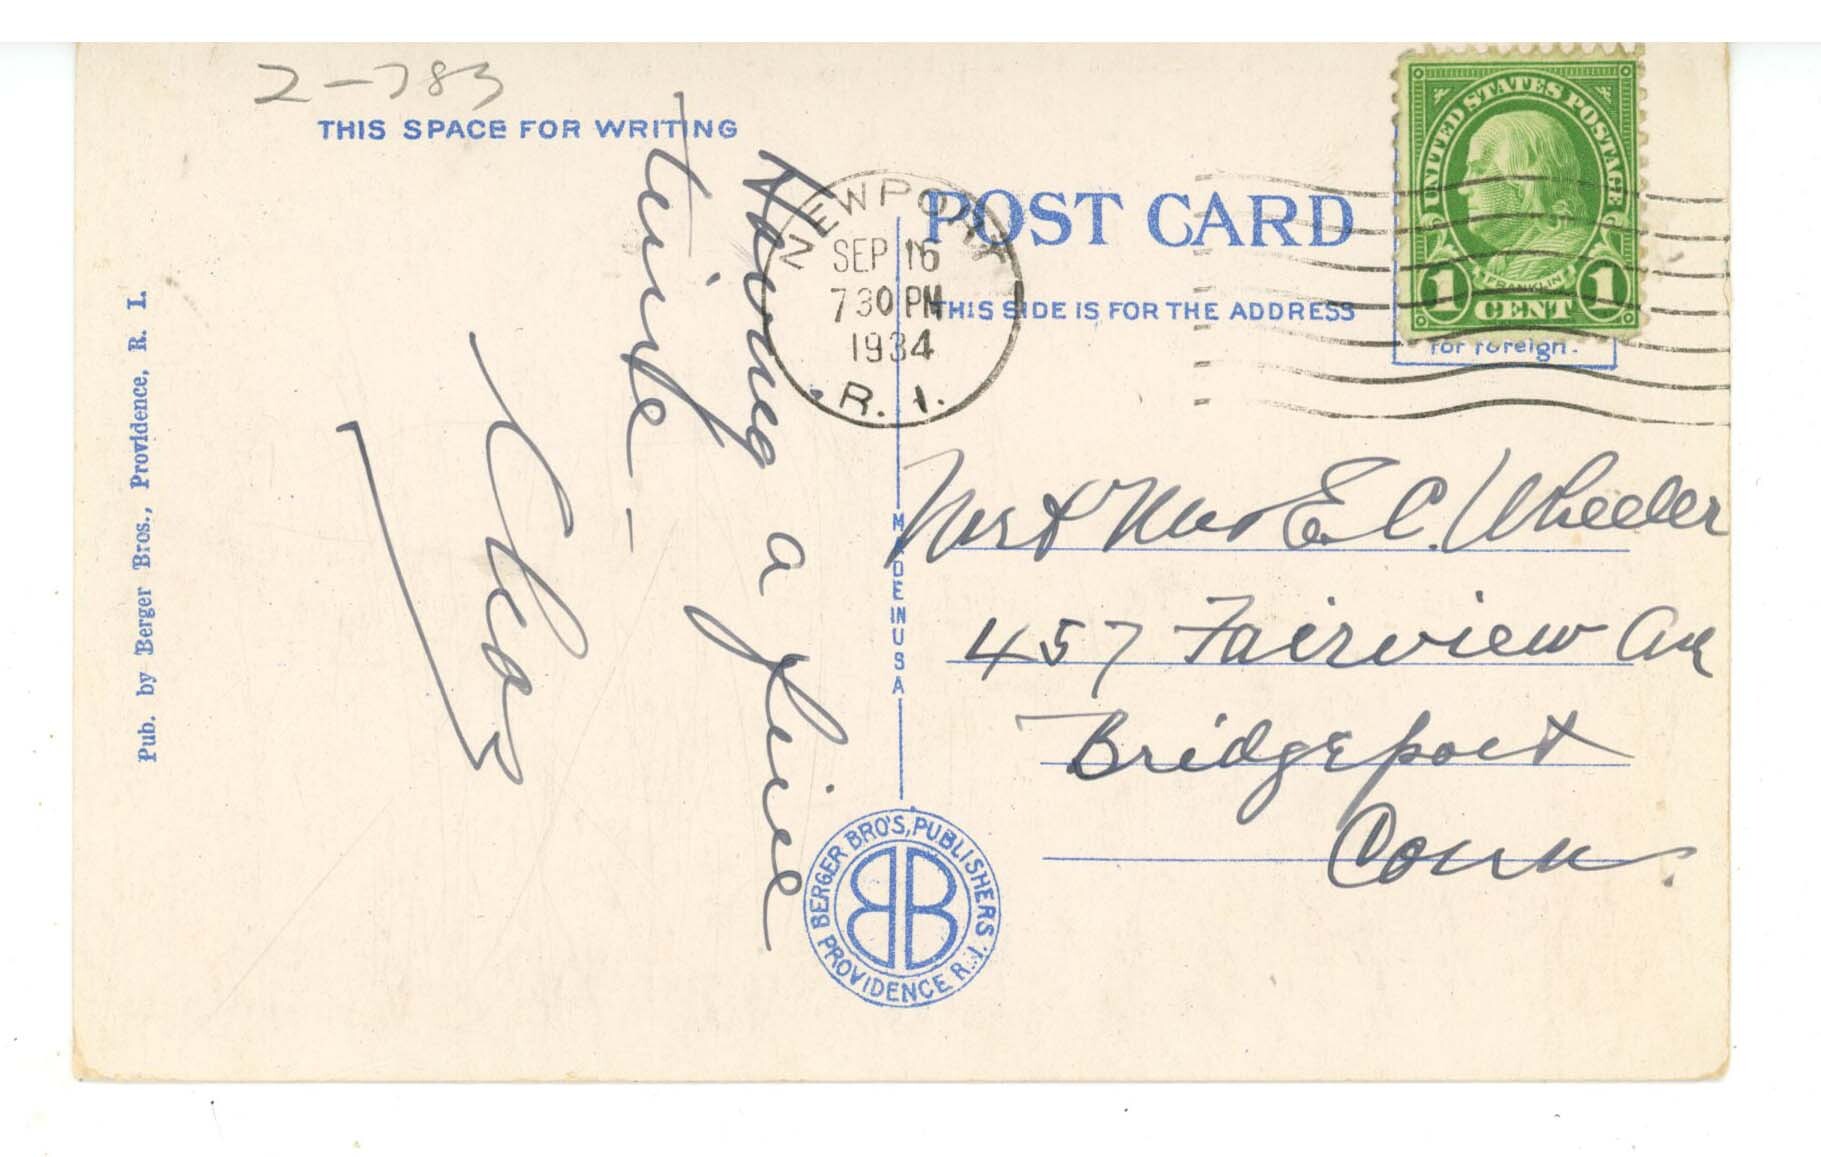 2-783
THIS SPACE FOR WRITING
Having a fine
time -
Pub. by Berger Bros., Providence, R. I.
NEWPORT
SEP 16
7 30 PM
1934
R. I.
POST CARD
THIS SIDE IS FOR THE ADDRESS
UNITED STATES POSTAGE
FRANKLIN
1 CENT 1
for foreign.
MADE IN USA
Mr & Mrs E. C. Wheeler
457 Fairview Ave
Bridgeport
Conn.
BERGER BRO'S, PUBLISHERS
BB
PROVIDENCE R. I.